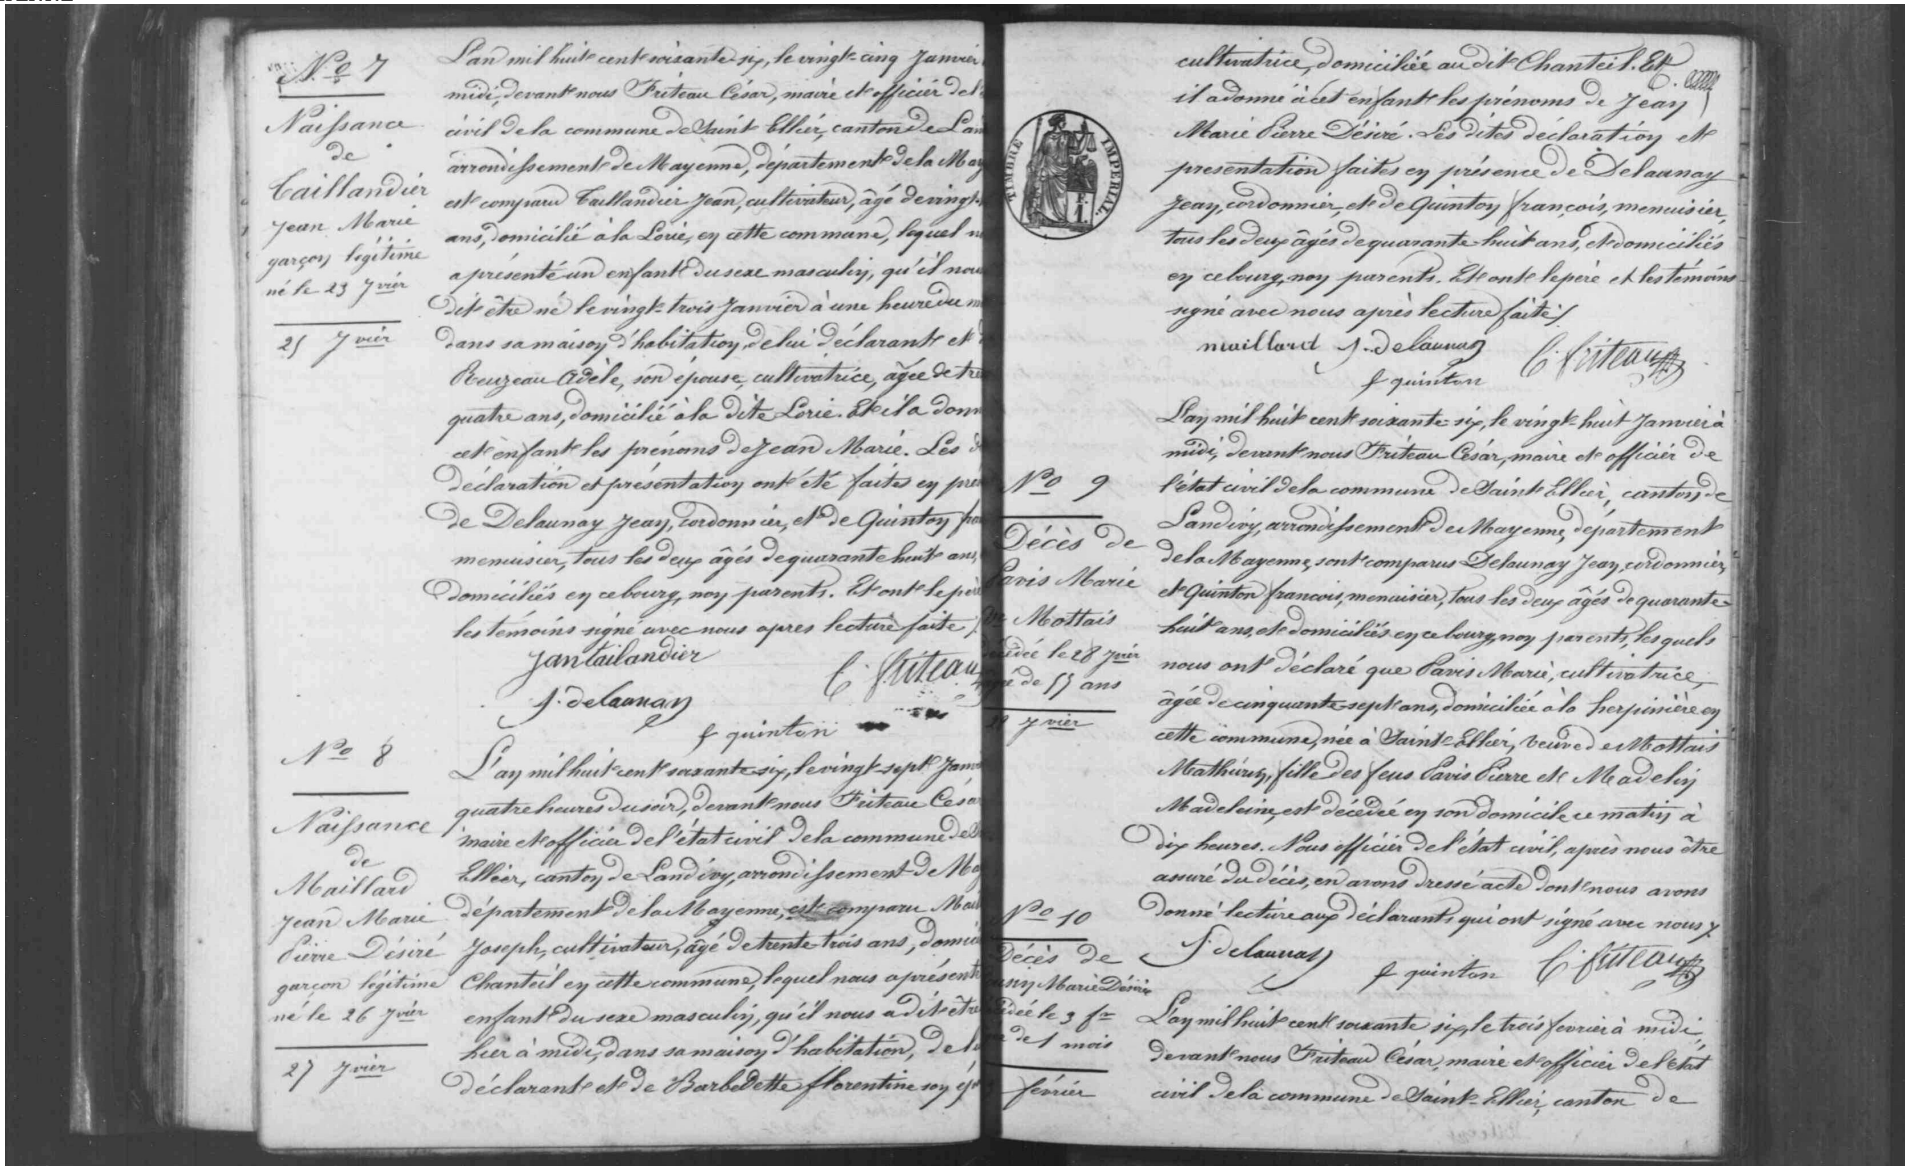 Nº 7
Naissance
de
Taillandier
Jean Marie
garçon légitime
né le 23 Jvier
25 Jvier
L'an mil huit cent soixante-six, le vingt-cinq Janvier
midi, devant nous Friteau César, maire et officier de l'
civil de la commune de Saint Ellier, canton de Lan
arrondissement de Mayenne, département de la May
est comparu Taillandier Jean, cultivateur, âgé de vingt-
ans, domicilié à la Lorie, en cette commune, lequel n
a présenté un enfant du sexe masculin, qu'il nou
dit être né le vingt-trois Janvier à une heure du m
dans sa maison d'habitation, de lui déclarant et
Reuzeau Adèle, son épouse, cultivatrice, âgée de tre
quatre ans, domicilié à la dite Lorie. Et il a donn
cet enfant les prénoms de Jean Marie. Les d
déclaration et présentation ont été faites en pré
de Delaunay Jean, cordonnier, et de Quinton fra
menuisier, tous les deux âgés de quarante huit ans,
domiciliés en ce bourg, non parents. Et ont le père
les témoins signé avec nous apres lecture faite
Jan tailandier
C. friteau
J. delaunay
f quinton
Nº 8
Naissance
de
Maillard
Jean Marie
Pierre Désiré
garçon légitime
né le 26 Jvier
27 Jvier
L'an mil huit cent soixante-six, le vingt-sept Janv
quatre heures du soir, devant nous Friteau César
maire et officier de l'état civil de la commune de S
Ellier, canton de Landivy, arrondissement de May
département de la Mayenne, est comparu Mail
Joseph, cultivateur, âgé de trente-trois ans, domici
Chanteil en cette commune, lequel nous a présent
enfant du sexe masculin, qu'il nous a dit être
hier à midi, dans sa maison d'habitation, de l
déclarant et de Barbedette florentine son ép
cultivatrice, domiciliée au dit Chanteil. Et
il a donné à cet enfant les prénoms de Jean
Marie Pierre Désiré. Les dites déclaration et
présentation faites en présence de Delaunay
Jean, cordonnier, et de Quinton françois, menuisier,
tous les deux âgés de quarante huit ans, et domiciliés
en ce bourg, non parents. Et ont le père et les témoins
signé avec nous après lecture faite
TIMBRE IMPÉRIAL.
maillard J. delaunay C. friteau
f quinton
Nº 9
Décès de
Pavis Marie
Mottais
décédée le 28 Jvier
âgée de 57 ans
Jvier
L'an mil huit cent soixante-six, le vingt-huit Janvier à
midi, devant nous Friteau César, maire et officier de
l'état civil de la commune de Saint Ellier, canton de
Landivy, arrondissement de Mayenne, département
de la Mayenne, sont comparus Delaunay Jean, cordonnier,
et Quinton françois, menuisier, tous les deux âgés de quarante-
huit ans, et domiciliés en ce bourg, non parents, lesquels
nous ont déclaré que Pavis Marie, cultivatrice,
âgée de cinquante-sept ans, domiciliée à la herpinière en
cette commune, née à Saint-Ellier, veuve de Mottais
Mathurin, fille des feus Pavis Pierre et Madelin
Madeleine, est décédée en son domicile ce matin à
dix heures. Nous officier de l'état civil, après nous être
assuré du décès, en avons dressé acte dont nous avons
donné lecture aux déclarants qui ont signé avec nous
J. delaunay f quinton C. friteau
Nº 10
Décès de
Marie Désirée
décédée le 3 fr
de 1 mois
février
L'an mil huit cent soixante six, le trois fevrier à midi,
devant nous Friteau César, maire et officier de l'état
civil de la commune de Saint-Ellier, canton de